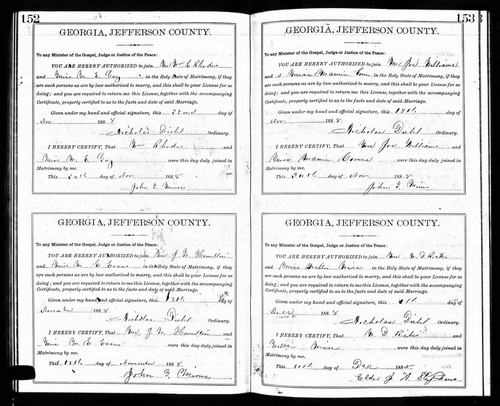 152
GEORGIA, JEFFERSON COUNTY.
To any Minister of the Gospel, Judge or Justice of the Peace:
YOU ARE HEREBY AUTHORIZED to join Mr. Wm C Rhodes
and Miss M. E. Gay in the Holy State of Matrimony, if they
are such persons as are by law authorized to marry, and this shall be your License for so
doing; and you are required to return me this License, together with the accompanying
Certificate, properly certified as to the facts and date of said Marriage.
Given under my hand and official signature, this 22nd day of
Nov 1888
Nicholas Diehl Ordinary.
I HEREBY CERTIFY, That Wm Rhodes
and Miss M. E. Gay were this day duly joined in
Matrimony by me.
This day of Nov 188
John
GEORGIA, JEFFERSON COUNTY.
To any Minister of the Gospel, Judge or Justice of the Peace:
YOU ARE HEREBY AUTHORIZED to join Mr. J. W. Hamilton
and Miss M. E. Evans in the Holy State of Matrimony, if they
are such persons as are by law authorized to marry, and this shall be your License for so
doing; and you are required to return me this License, together with the accompanying
Certificate, properly certified as to the facts and date of said Marriage.
Given under my hand and official signature, this day of
November 1888
Nicholas Diehl Ordinary.
I HEREBY CERTIFY, That Mr J. W. Hamilton
and Miss M. E. Evans were this day duly joined in
Matrimony by me.
This day of November 1888
John
153
GEORGIA, JEFFERSON COUNTY.
To any Minister of the Gospel, Judge or Justice of the Peace:
YOU ARE HEREBY AUTHORIZED to join Mr. Joe Williams
and Miss Mamie in the Holy State of Matrimony, if they
are such persons as are by law authorized to marry, and this shall be your License for so
doing; and you are required to return me this License, together with the accompanying
Certificate, properly certified as to the facts and date of said Marriage.
Given under my hand and official signature, this day of
Nov 1888
Nicholas Diehl Ordinary.
I HEREBY CERTIFY, That Mr Joe William
and Miss Mamie were this day duly joined in
Matrimony by me.
This day of Nov 1888
John
GEORGIA, JEFFERSON COUNTY.
To any Minister of the Gospel, Judge or Justice of the Peace:
YOU ARE HEREBY AUTHORIZED to join Mr. W. D.
and Miss in the Holy State of Matrimony, if they
are such persons as are by law authorized to marry, and this shall be your License for so
doing; and you are required to return me this License, together with the accompanying
Certificate, properly certified as to the facts and date of said Marriage.
Given under my hand and official signature, this day of
188
Nicholas Diehl Ordinary.
I HEREBY CERTIFY, That W. D.
and were this day duly joined in
Matrimony by me.
This day of Dec 1888
Elder J. W. Stephens